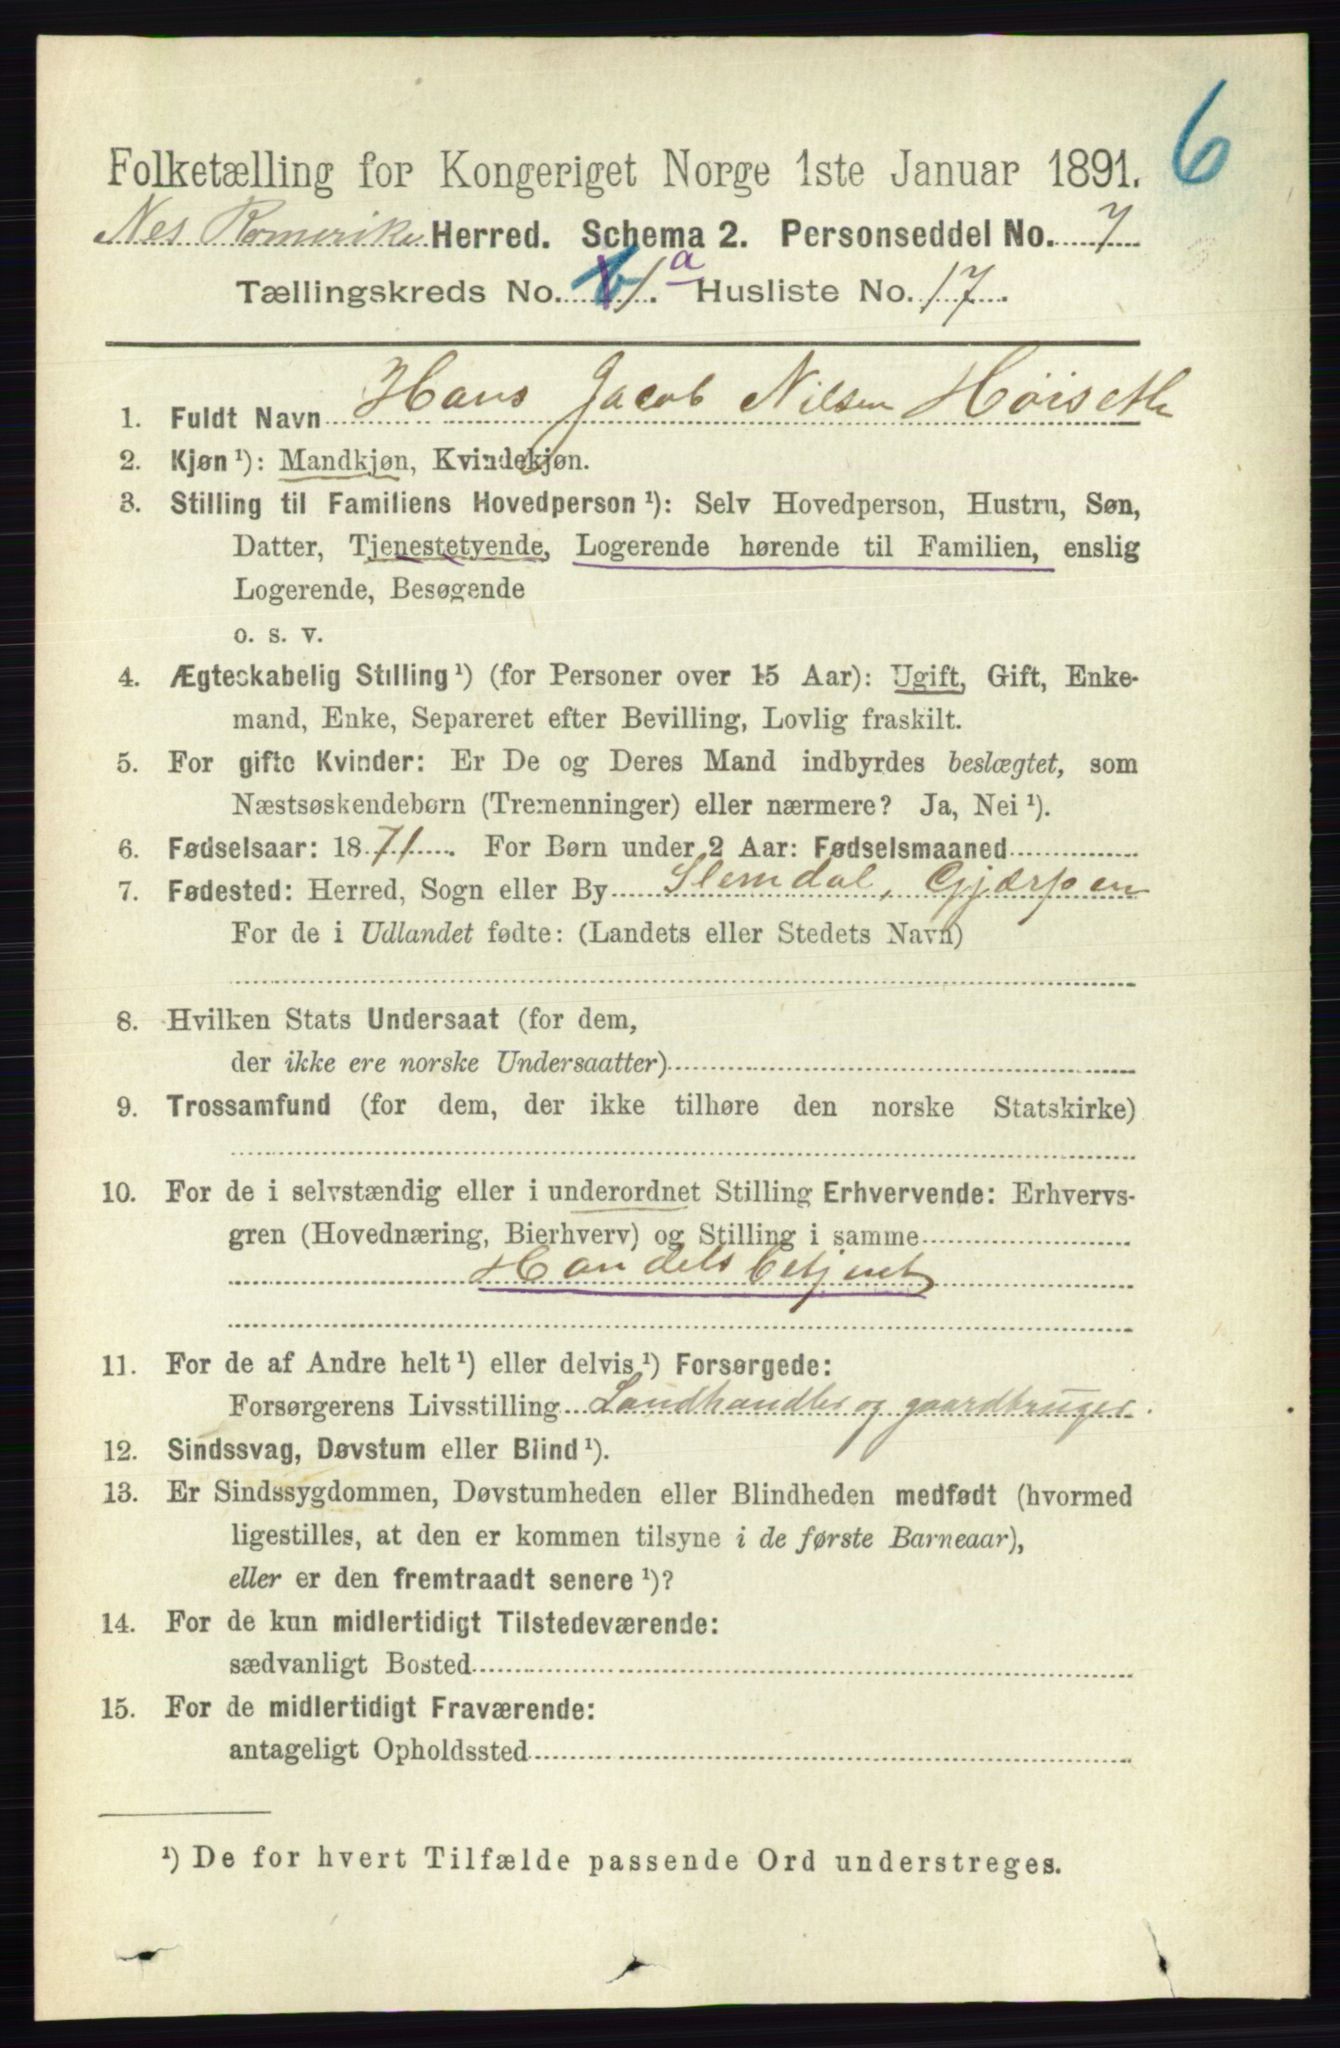 6
Folketælling for Kongeriget Norge 1ste Januar 1891.
Nes Romerike Herred. Schema 2. Personseddel No. 7
Tællingskreds No. 1. a Husliste No. 17.
1. Fuldt Navn Hans Jacob Nilsen Höiseth
2. Kjøn ¹): Mandkjøn, Kvindekjøn.
3. Stilling til Familiens Hovedperson ¹): Selv Hovedperson, Hustru, Søn,
Datter, Tjenestetyende, Logerende hørende til Familien, enslig
Logerende, Besøgende
o. s. v.
4. Ægteskabelig Stilling ¹) (for Personer over 15 Aar): Ugift, Gift, Enke-
mand, Enke, Separeret efter Bevilling, Lovlig fraskilt.
5. For gifte Kvinder: Er De og Deres Mand indbyrdes beslægtet, som
Næstsøskendebørn (Tremenninger) eller nærmere? Ja, Nei ¹).
6. Fødselsaar: 1871. For Børn under 2 Aar: Fødselsmaaned
7. Fødested: Herred, Sogn eller By Slemdal, Gjærpen
For de i Udlandet fødte: (Landets eller Stedets Navn)
8. Hvilken Stats Undersaat (for dem,
der ikke ere norske Undersaatter)
9. Trossamfund (for dem, der ikke tilhøre den norske Statskirke)
10. For de i selvstændig eller i underordnet Stilling Erhvervende: Erhvervs-
gren (Hovednæring, Bierhverv) og Stilling i samme
Handelsbetjent
11. For de af Andre helt ¹) eller delvis ¹) Forsørgede:
Forsørgerens Livsstilling Landhandler og gaardbruger.
12. Sindssvag, Døvstum eller Blind ¹).
13. Er Sindssygdommen, Døvstumheden eller Blindheden medfødt (hvormed
ligestilles, at den er kommen tilsyne i de første Barneaar),
eller er den fremtraadt senere ¹)?
14. For de kun midlertidigt Tilstedeværende:
sædvanligt Bosted
15. For de midlertidigt Fraværende:
antageligt Opholdssted
¹) De for hvert Tilfælde passende Ord understreges.